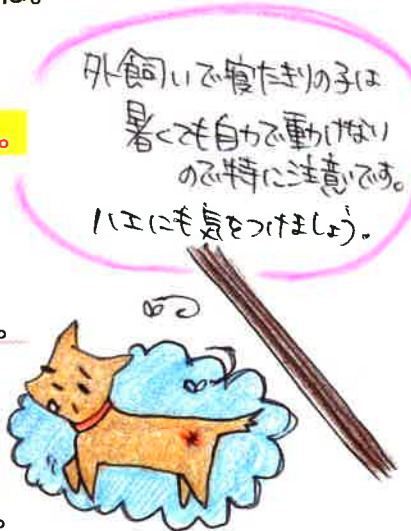 は。
外飼いで寝たきりの子は
暑くても自力で動けない
ので特に注意です。
ハエにも気をつけましょう。
。
。
。